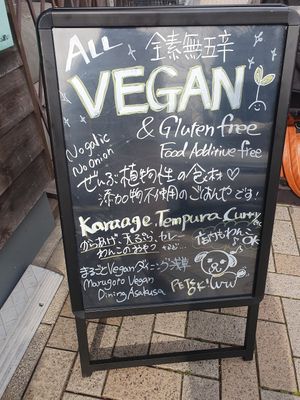 ALL
全素無五辛
VEGAN
& Gluten free
Food Additive free
No galic
No Onion
ぜんぶ植物性のもの♡
添加物不使用のごはんやです!
Karaage. Tempura Curry
からあげ、天ぷら、カレー
わんこのおやつ
OK
まるごとVeganダイニング浅草
Marugoto Vegan
Dining Asakusa
PETS OK!